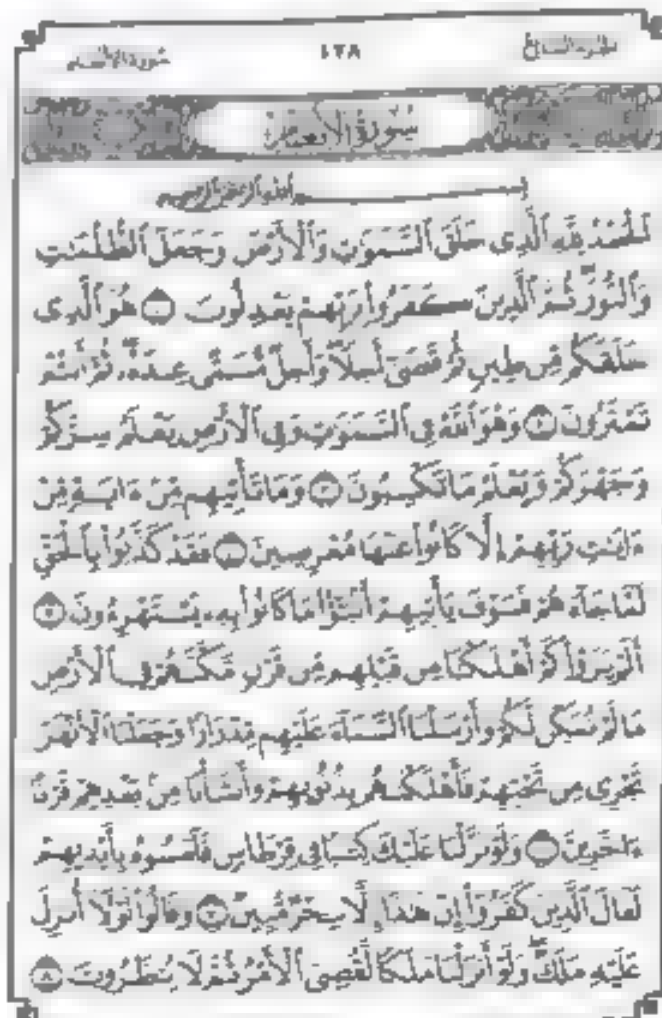 الجزء السابع ١٢٨ سورة الأنعام
سُورَةُ الأَنْعَامِ
بِسْمِ ٱللَّهِ ٱلرَّحْمَٰنِ ٱلرَّحِيمِ
ٱلْحَمْدُ لِلَّهِ ٱلَّذِى خَلَقَ ٱلسَّمَٰوَٰتِ وَٱلْأَرْضَ وَجَعَلَ ٱلظُّلُمَٰتِ
وَٱلنُّورَ ثُمَّ ٱلَّذِينَ كَفَرُوا۟ بِرَبِّهِمْ يَعْدِلُونَ ١ هُوَ ٱلَّذِى
خَلَقَكُم مِّن طِينٍ ثُمَّ قَضَىٰٓ أَجَلًا وَأَجَلٌ مُّسَمًّى عِندَهُۥ ثُمَّ أَنتُمْ
تَمْتَرُونَ ٢ وَهُوَ ٱللَّهُ فِى ٱلسَّمَٰوَٰتِ وَفِى ٱلْأَرْضِ يَعْلَمُ سِرَّكُمْ
وَجَهْرَكُمْ وَيَعْلَمُ مَا تَكْسِبُونَ ٣ وَمَا تَأْتِيهِم مِّنْ ءَايَةٍ مِّنْ
ءَايَٰتِ رَبِّهِمْ إِلَّا كَانُوا۟ عَنْهَا مُعْرِضِينَ ٤ فَقَدْ كَذَّبُوا۟ بِٱلْحَقِّ
لَمَّا جَآءَهُمْ فَسَوْفَ يَأْتِيهِمْ أَنۢبَٰٓؤُا۟ مَا كَانُوا۟ بِهِۦ يَسْتَهْزِءُونَ ٥
أَلَمْ يَرَوْا۟ كَمْ أَهْلَكْنَا مِن قَبْلِهِم مِّن قَرْنٍ مَّكَّنَّٰهُمْ فِى ٱلْأَرْضِ
مَا لَمْ نُمَكِّن لَّكُمْ وَأَرْسَلْنَا ٱلسَّمَآءَ عَلَيْهِم مِّدْرَارًا وَجَعَلْنَا ٱلْأَنْهَٰرَ
تَجْرِى مِن تَحْتِهِمْ فَأَهْلَكْنَٰهُم بِذُنُوبِهِمْ وَأَنشَأْنَا مِنۢ بَعْدِهِمْ قَرْنًا
ءَاخَرِينَ ٦ وَلَوْ نَزَّلْنَا عَلَيْكَ كِتَٰبًا فِى قِرْطَاسٍ فَلَمَسُوهُ بِأَيْدِيهِمْ
لَقَالَ ٱلَّذِينَ كَفَرُوٓا۟ إِنْ هَٰذَآ إِلَّا سِحْرٌ مُّبِينٌ ٧ وَقَالُوا۟ لَوْلَآ أُنزِلَ
عَلَيْهِ مَلَكٌ وَلَوْ أَنزَلْنَا مَلَكًا لَّقُضِىَ ٱلْأَمْرُ ثُمَّ لَا يُنظَرُونَ ٨